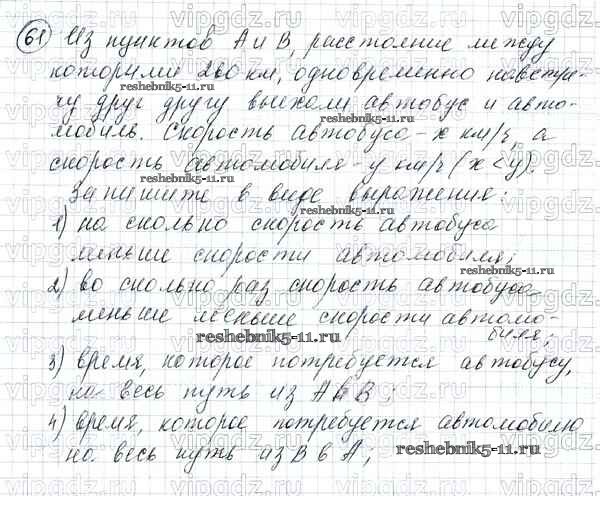 61 Из пунктов А и В, расстояние между
которыми 260 км, одновременно навстре-
чу друг другу выехали автобус и авто-
мобиль. Скорость автобуса - x км/ч, а
скорость автомобиля - y км/ч (x < y).
Запишите в виде выражения:
1) на сколько скорость автобуса
меньше скорости автомобиля;
2) во сколько раз скорость автобуса
меньше меньше скорости автомо-
биля;
3) время, которое потребуется автобусу,
на весь путь из А в В;
4) время, которое потребуется автомобилю
на весь путь из В в А;
reshebnik5-11.ru
reshebnik5-11.ru
reshebnik5-11.ru
reshebnik5-11.ru
reshebnik5-11.ru
vipgdz.ru